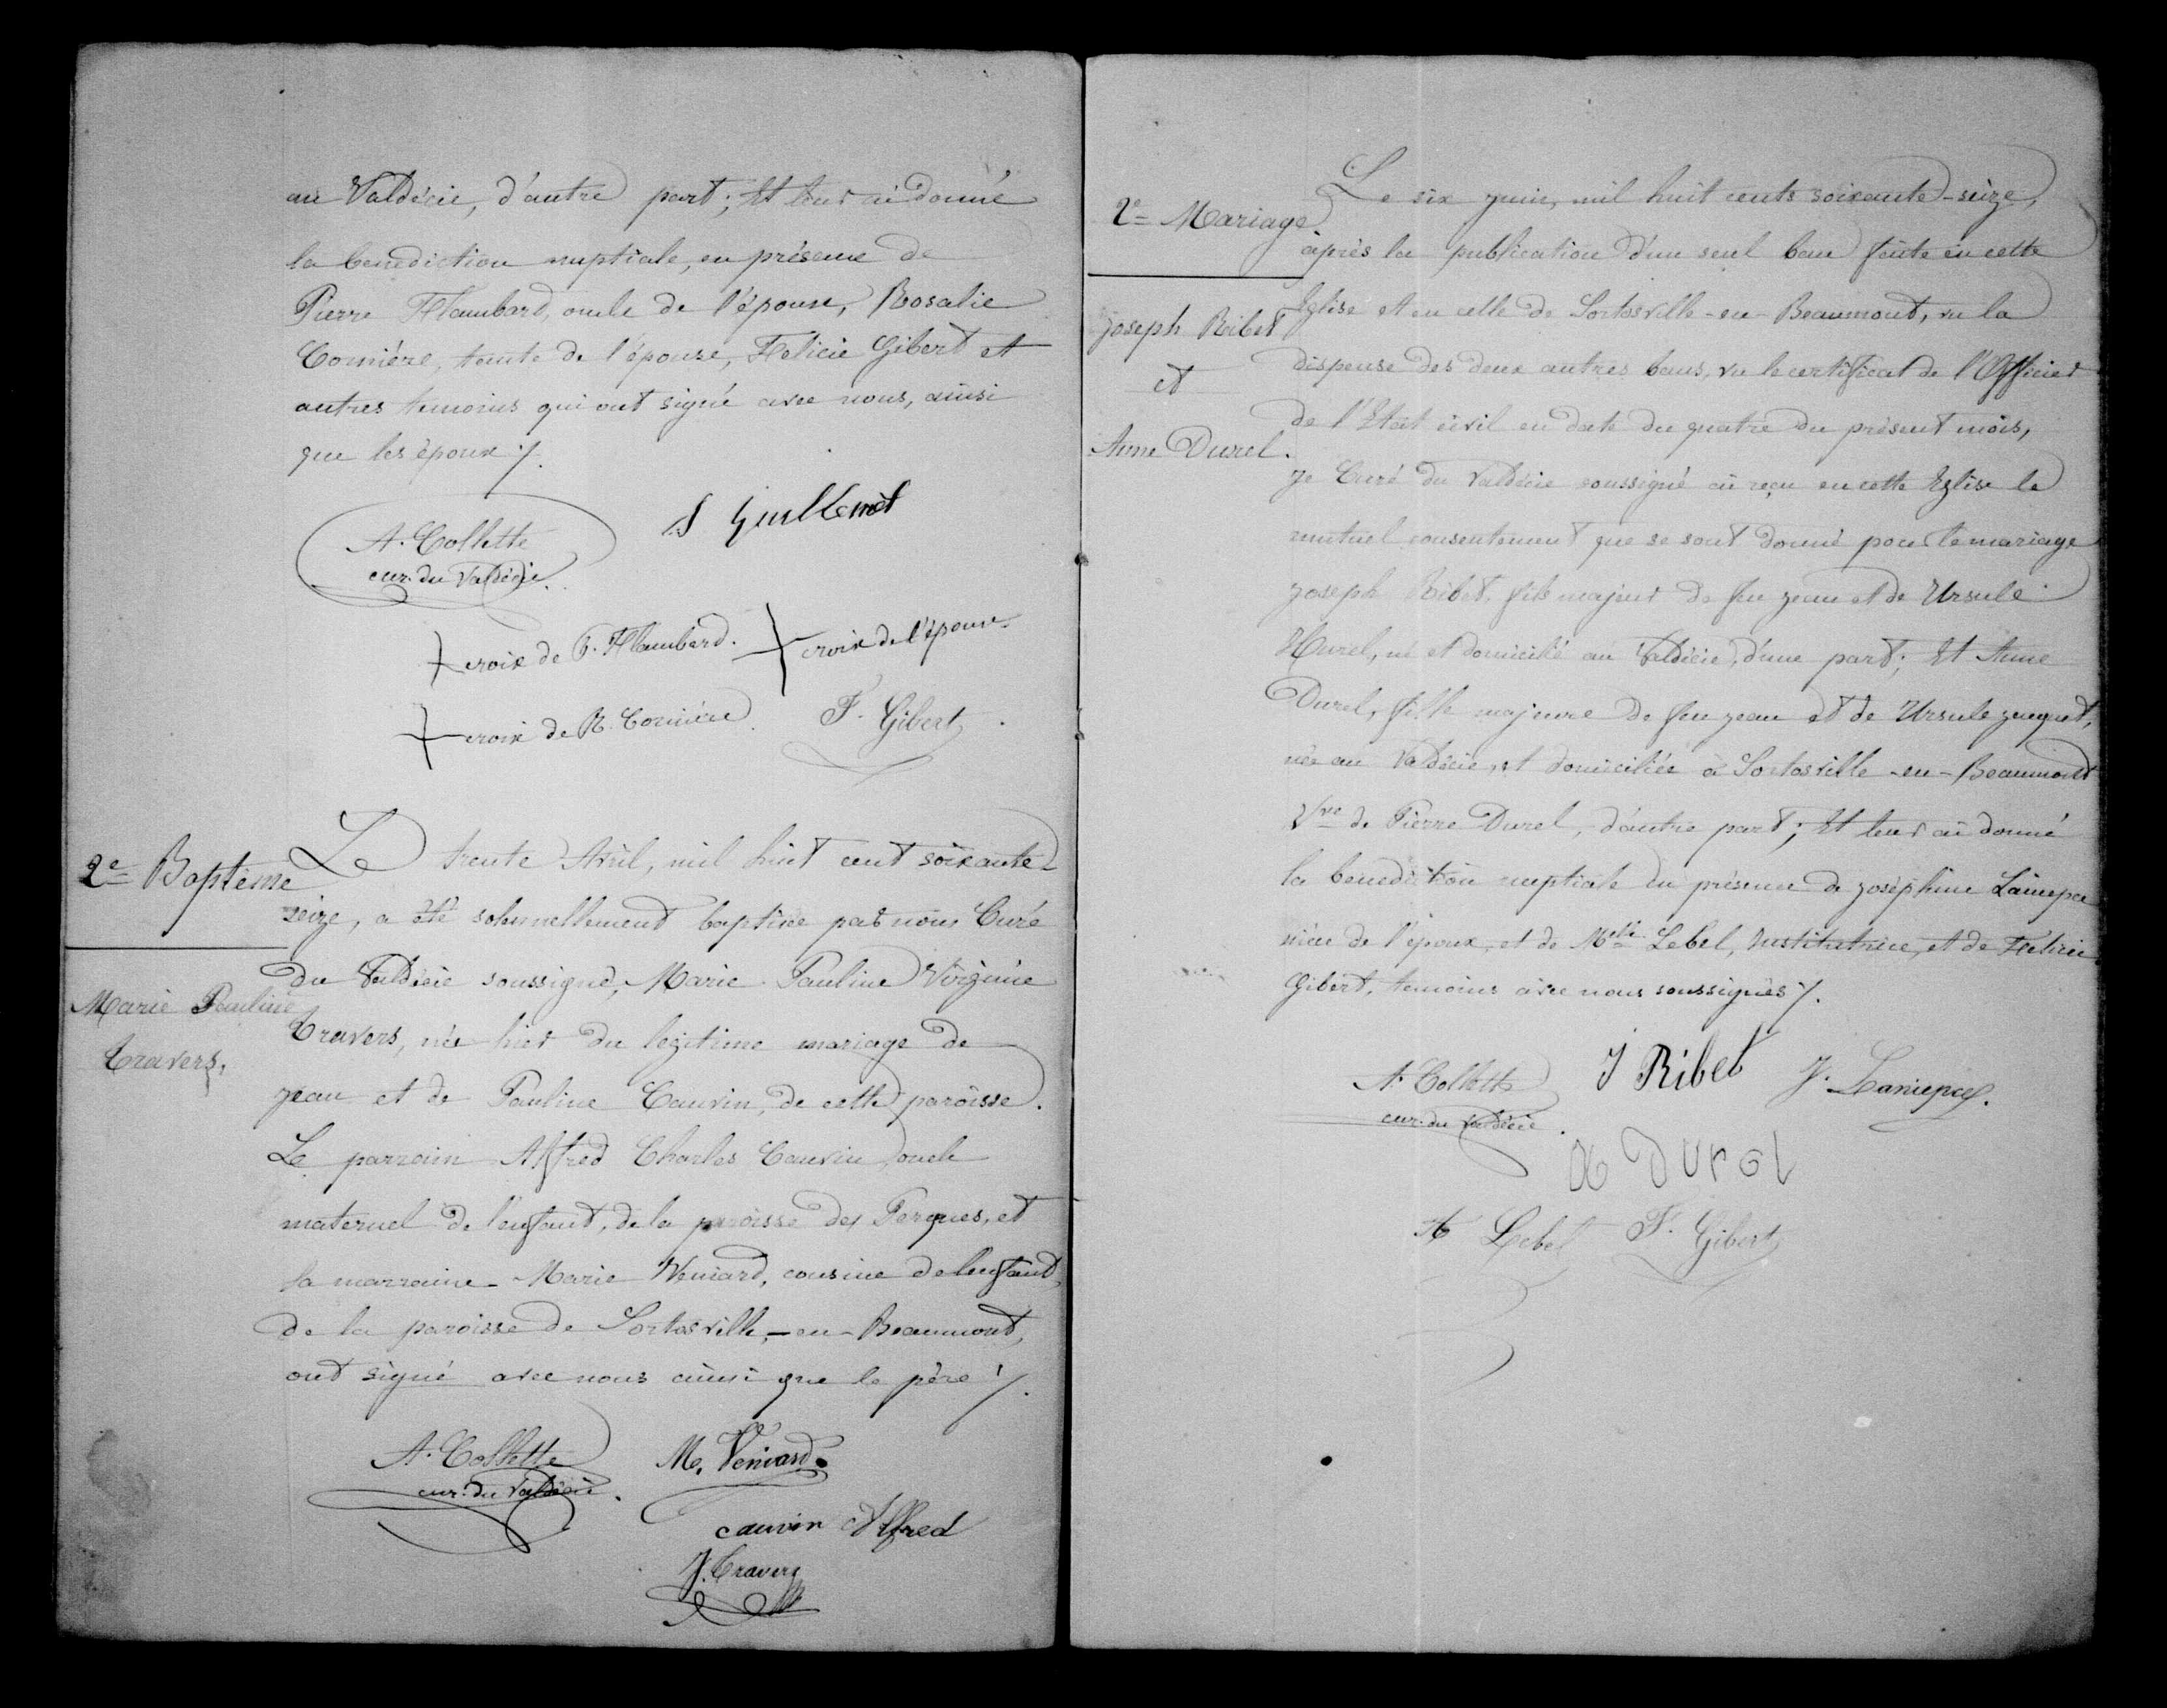 au Valdécie, d'autre part; Et leur ai donné
la benediction nuptiale, en présence de
Pierre Flambard, oncle de l'épouse, Rosalie
Cornière, tante de l'épouse, Felicie Gibert et
autres temoins qui ont signé avec nous, ainsi
que les époux ./.
A. Collette
cur. du Valdécie.
S Guillemet
croix de P. Flambard.
croix de l'épouse.
croix de R. Cornière
F. Gibert
2e Baptême
Marie Pauline
Travers,
Le trente Avril, mil huit cent soixante-
seize, a été solennellement baptisée par nous Curé
du Valdécie soussigné, Marie Pauline Virginie
Travers, née hier du legitime mariage de
Jean et de Pauline Cauvin, de cette paroisse.
Le parrain Alfred Charles Cauvin oncle
maternel de l'enfant, de la paroisse des Perques, et
la marraine - Marie Veniard, cousine de l'enfant,
de la paroisse de Sortosville-en-Beaumont,
ont signé avec nous ainsi que le père ./.
A. Collette
cur. du Valdécie.
M. Veniard.
cauvin Alfred
J. Travers
2e Mariage
Joseph Ribet
et
Anne Durel.
Le six juin, mil huit cents soixante-seize,
après la publication d'un seul ban faite en cette
Eglise et en celle de Sortosville-en-Beaumont, vu la
dispense des deux autres bans, vu le certificat de l'Officier
de l'Etat civil en date du quatre du présent mois,
Je Curé du Valdécie soussigné ai reçu en cette Eglise le
mutuel consentement que se sont donné pour le mariage
Joseph Ribet, fils majeur de feu Jean et de Ursule
Hurel, né et domicilié au Valdécie, d'une part; Et Anne
Durel, fille majeure de feu Jean et de Ursule
née au Valdécie, et domiciliée à Sortosville-en-Beaumont
Vve de Pierre Durel, d'autre part; Et leur ai donné
la benediction nuptiale en présence de Joséphine Laniepce
nièce de l'époux, et de Melle Lebel, Institutrice, et de Felicie
Gibert, temoins avec nous soussignés ./.
A. Collette
cur. du Valdécie.
J Ribet
J. Laniepce.
DUrel
A Lebel
F. Gibert